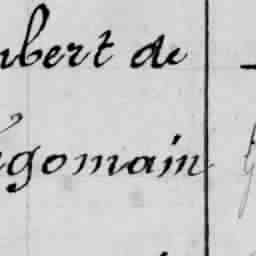 ubert de
gomain